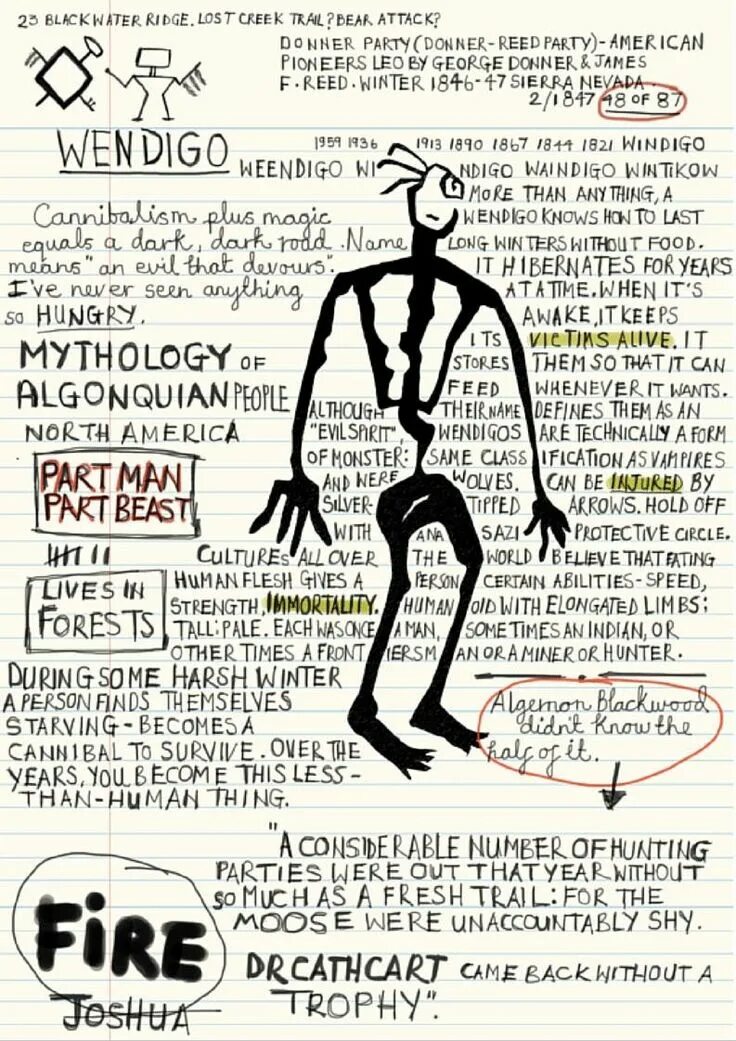 23 BLACKWATER RIDGE. LOST CREEK TRAIL? BEAR ATTACK?
DONNER PARTY (DONNER-REED PARTY)- AMERICAN
PIONEERS LEO BY GEORGE DONNER & JAMES
F. REED. WINTER 1846-47 SIERRA NEVADA.
2/1847 48 OF 87
WENDIGO
1959 1936 1913 1890 1867 1844 1821 WINDIGO
WEENDIGO WI NDIGO WAINDIGO WINTIKOW
MORE THAN ANYTHING, A
WENDIGO KNOWS HOW TO LAST
LONG WINTERS WITHOUT FOOD.
IT HIBERNATES FOR YEARS
AT A TIME. WHEN IT'S
AWAKE, IT KEEPS
ITS VICTIMS ALIVE. IT
STORES THEM SO THAT IT CAN
FEED WHENEVER IT WANTS.
Cannibalism plus magic
equals a dark, dark road. Name
means "an evil that devours".
I've never seen anything
so HUNGRY.
MYTHOLOGY OF
ALGONQUIAN PEOPLE
NORTH AMERICA
ALTHOUGH THEIR NAME DEFINES THEM AS AN
"EVIL SPIRIT", WENDIGOS ARE TECHNICALLY A FORM
OF MONSTER: SAME CLASS IFICATION AS VAMPIRES
AND WERE WOLVES. CAN BE INJURED BY
SILVER- TIPPED ARROWS. HOLD OFF
WITH ANA SAZI PROTECTIVE CIRCLE.
PART MAN
PART BEAST
LIVES IN
FORESTS
CULTURES ALL OVER THE WORLD BELIEVE THAT EATING
HUMAN FLESH GIVES A PERSON CERTAIN ABILITIES - SPEED,
STRENGTH, IMMORTALITY. HUMAN OID WITH ELONGATED LIMBS:
TALL: PALE. EACH WAS ONCE A MAN, SOMETIMES AN INDIAN, OR
OTHER TIMES A FRONT IERSM AN OR A MINER OR HUNTER.
DURING SOME HARSH WINTER
A PERSON FINDS THEMSELVES
STARVING - BECOMES A
CANNIBAL TO SURVIVE. OVER THE
YEARS, YOU BECOME THIS LESS-
THAN-HUMAN THING.
Algernon Blackwood
didn't know the
half of it.
"A CONSIDERABLE NUMBER OF HUNTING
PARTIES WERE OUT THAT YEAR WITHOUT
SO MUCH AS A FRESH TRAIL: FOR THE
MOOSE WERE UNACCOUNTABLY SHY.
DR CATHCART CAME BACK WITHOUT A
TROPHY".
FiRE
JOSHUA